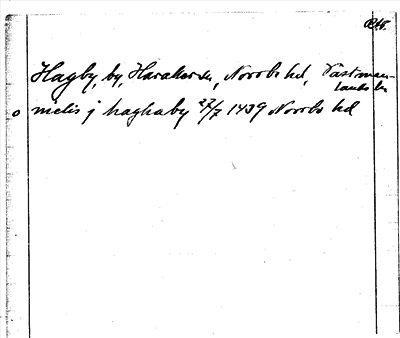 Hagby, by, Haraker sn, Norrbo hd, Västman-
lands län
o melis j haghaby 22/7 1439 Norrbo hd